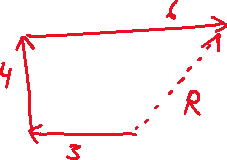 6
4
R
3